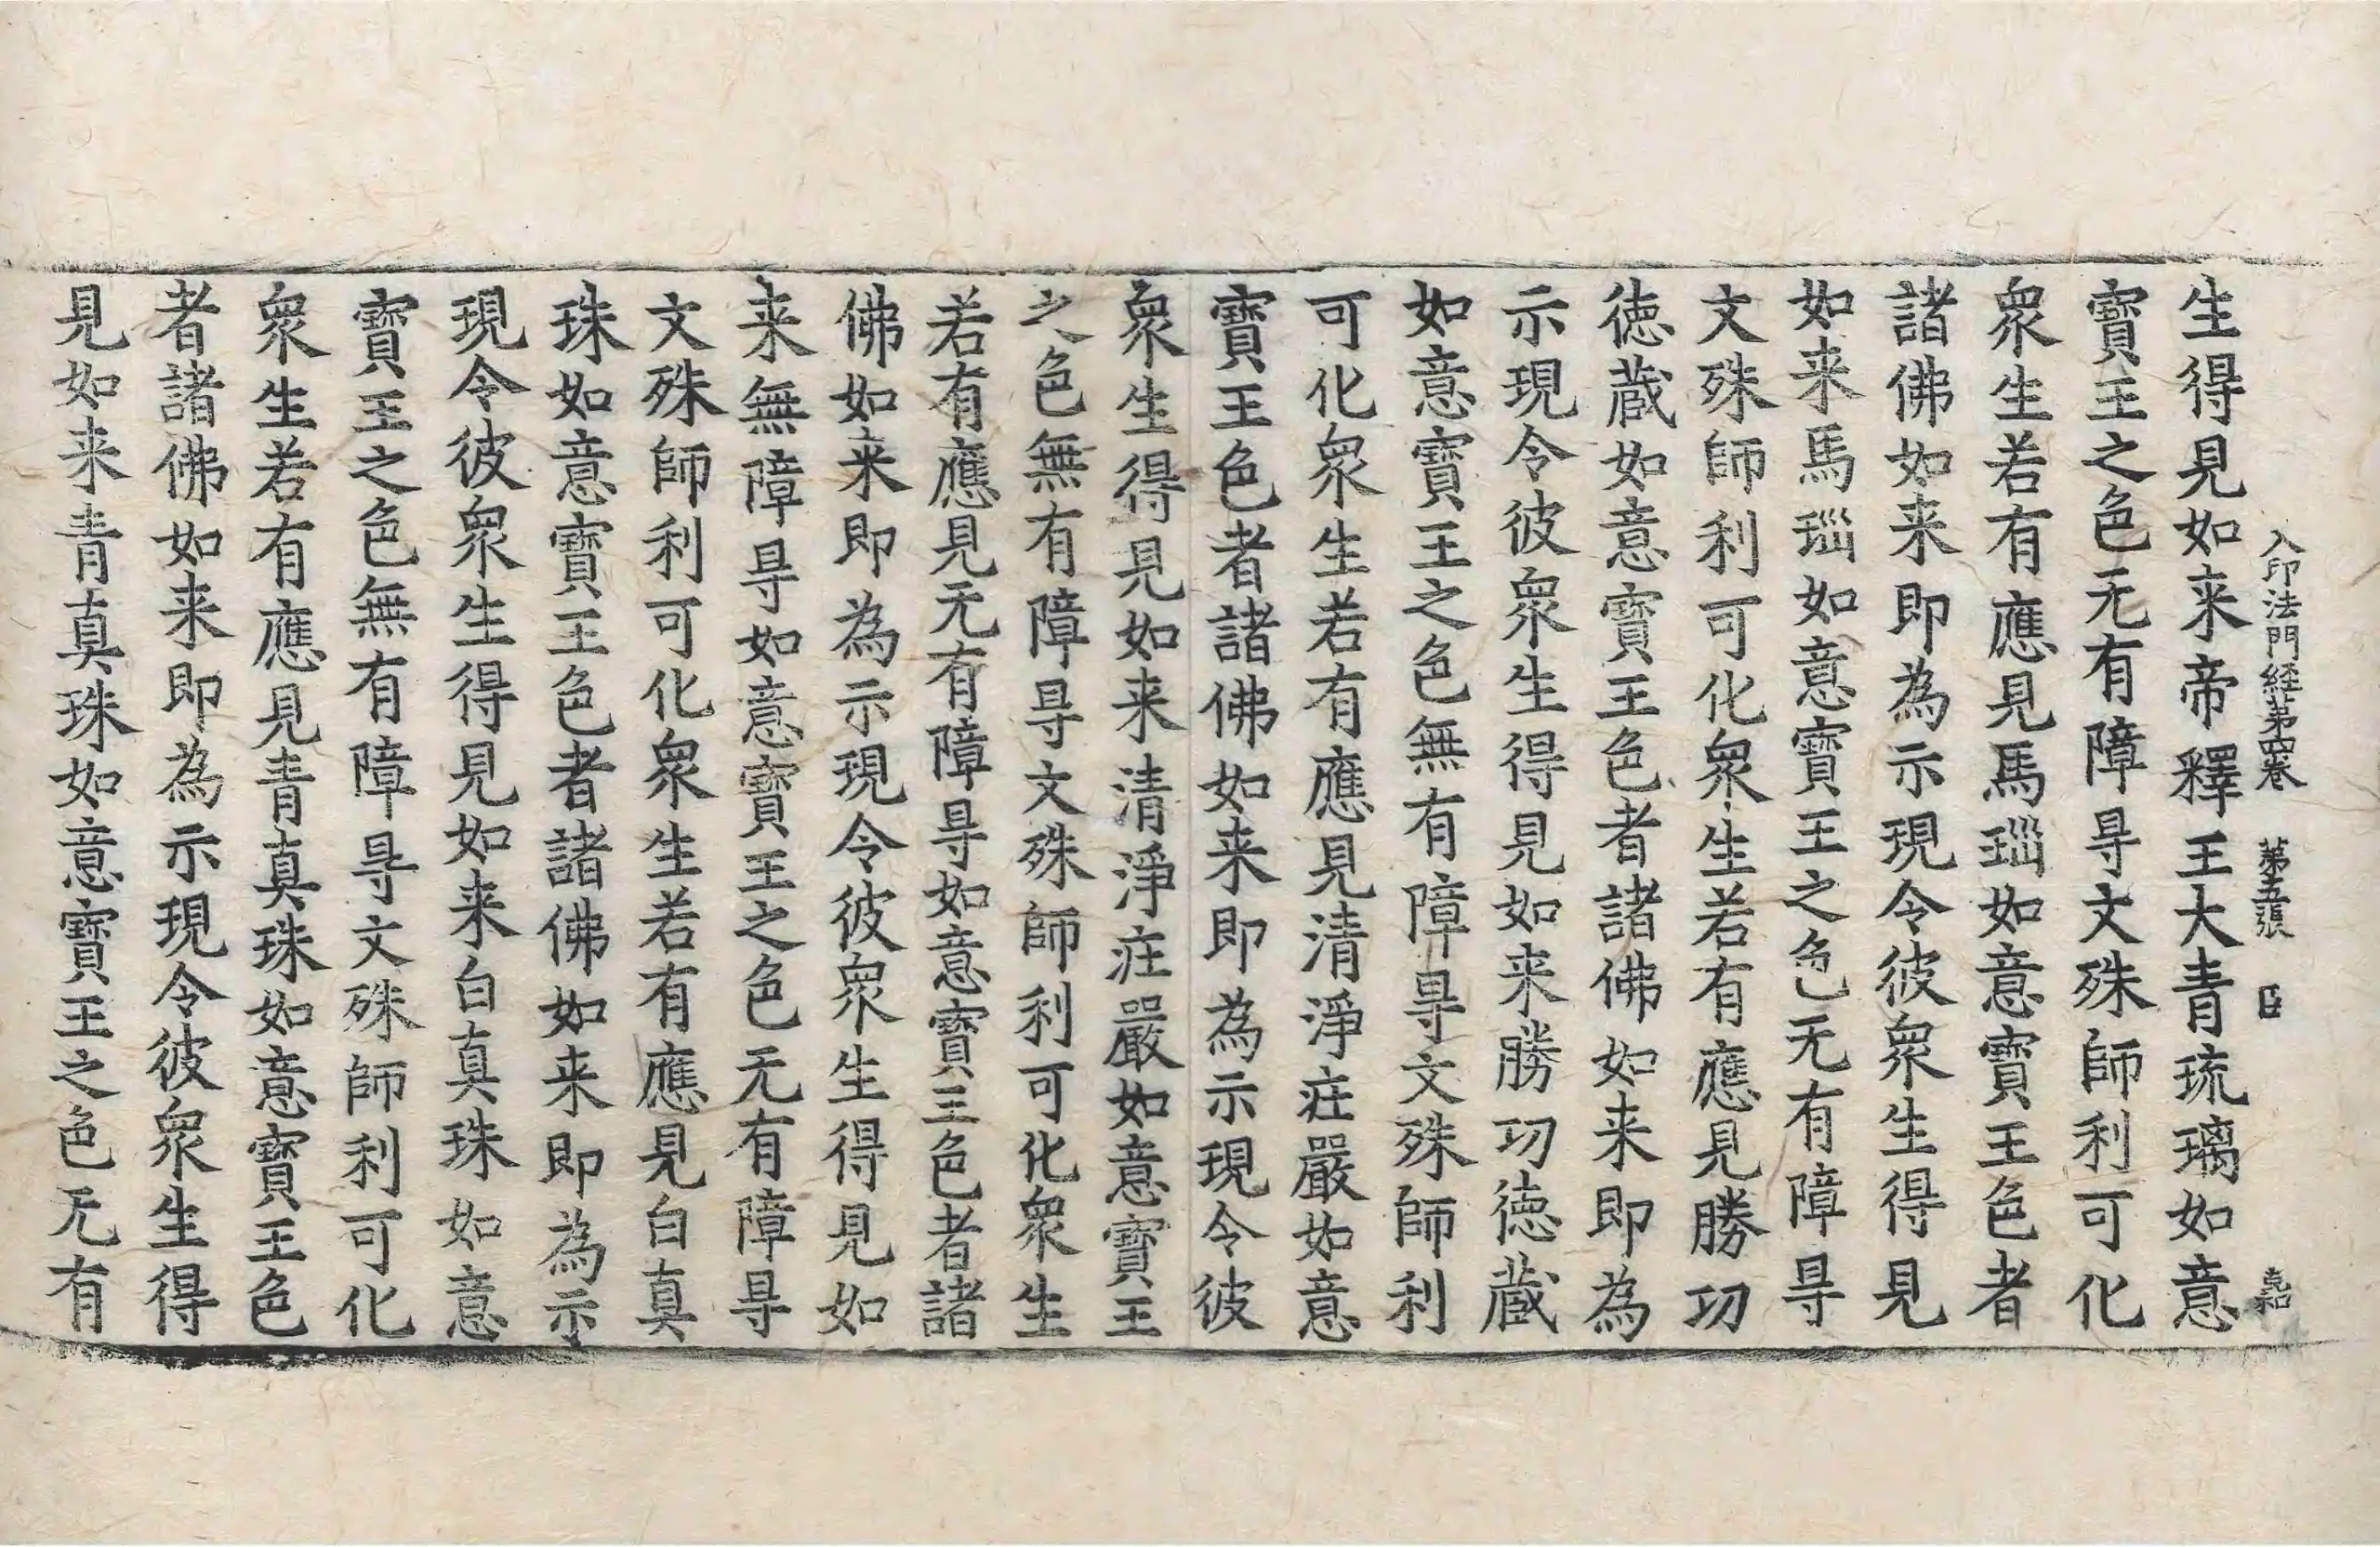 入印法門経苐四巻 苐五張 臣
生得見如来帝釋王大青琉璃如意
寶王之色无有障㝵文殊師利可化
衆生若有應見馬瑙如意寶王色者
諸佛如来即為示現令彼衆生得見
如来馬瑙如意寶王之色无有障㝵
文殊師利可化衆生若有應見勝功
徳蔵如意寶王色者諸佛如来即為
示現令彼衆生得見如来勝功徳蔵
如意寶王之色無有障㝵文殊師利
可化衆生若有應見清淨庄嚴如意
寶王色者諸佛如来即為示現令彼
衆生得見如来清淨庄嚴如意寶王
之色無有障㝵文殊師利可化衆生
若有應見无有障㝵如意寶王色者諸
佛如来即為示現令彼衆生得見如
来無障㝵如意寶王之色无有障㝵
文殊師利可化衆生若有應見白真
珠如意寶王色者諸佛如来即為示
現令彼衆生得見如来白真珠如意
寶王之色無有障㝵文殊師利可化
衆生若有應見青真珠如意寶王色
者諸佛如来即為示現令彼衆生得
見如来青真珠如意寶王之色无有